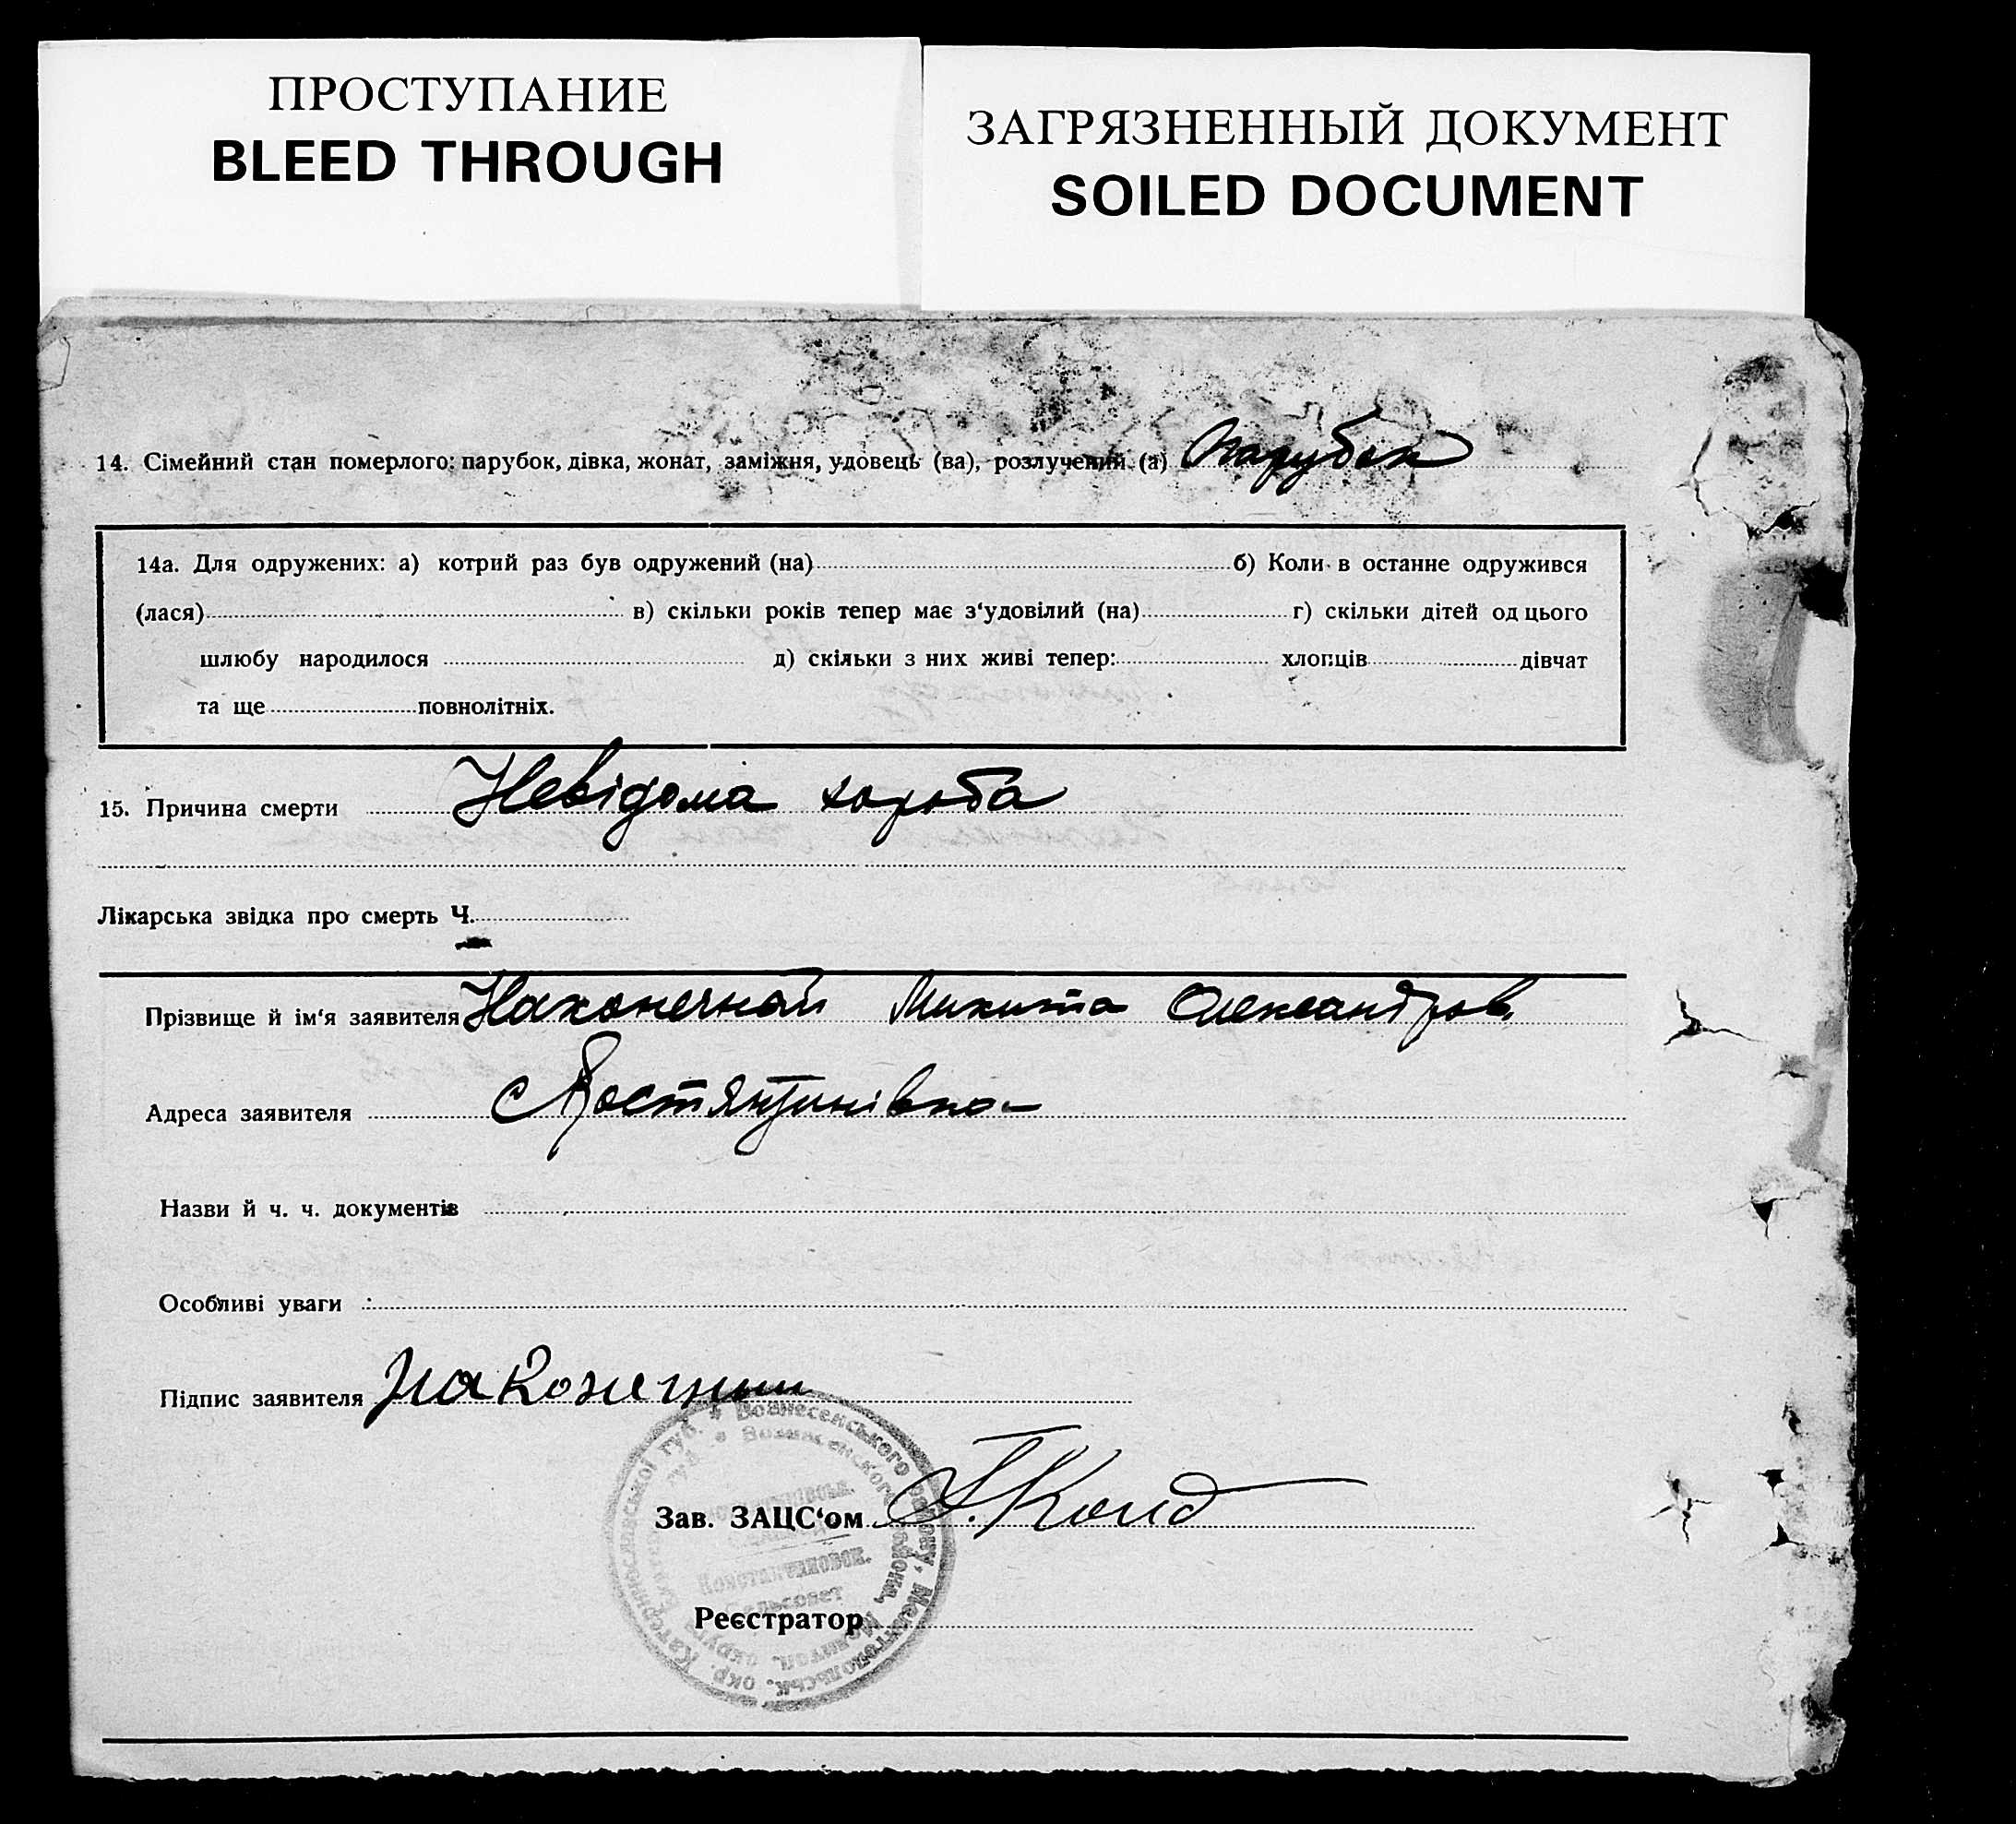 ПРОСТУПАНИЕ
BLEED THROUGH
ЗАГРЯЗНЕННЫЙ ДОКУМЕНТ
SOILED DOCUMENT
14. Сімейний стан померлого: парубок, дівка, жонат, заміжня, удовець (ва), розлучений (а) парубок
14а. Для одружених: а) котрий раз був одружений (на) б) Коли в останне одружився
(лася) в) скільки років тепер має з‘удовілий (на) г) скільки дітей од цього
шлюбу народилося д) скільки з них живі тепер: хлопців дівчат
та ще повнолітніх.
15. Причина смерти Невідома хороба
Лікарська звідка про смерть Ч.
Прізвище й ім‘я заявителя Наконечный Микита Олександров.
Адреса заявителя с Костянтинівка
Назви й ч. ч. документів
Особливі уваги
Підпис заявителя Наконечный
Зав. ЗАЦС‘ом
Реєстратор
Вознесенського району, Мелітопольськ. окр. Катеринославської губ.
Константиновск.
Сельсовет